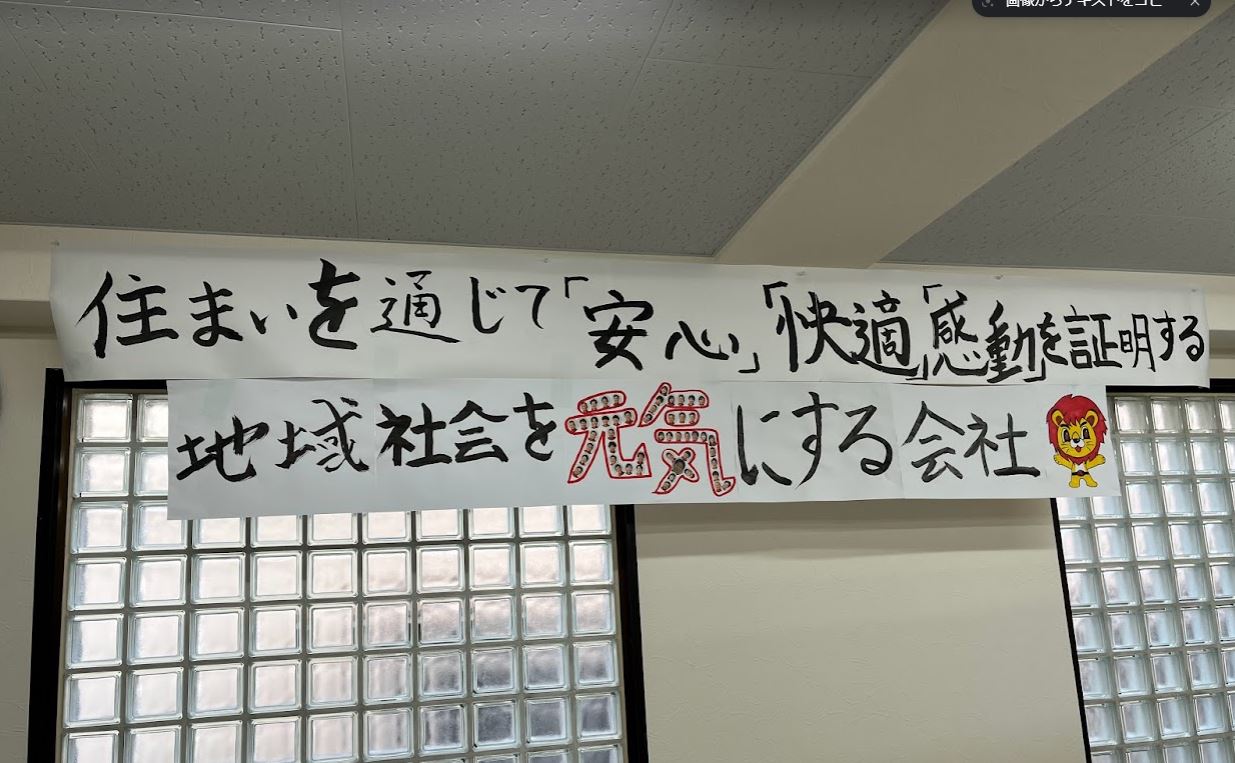 画像からテキストをコピー
住まいを通じて「安心」「快適」「感動」を証明する
地域社会を元気にする会社